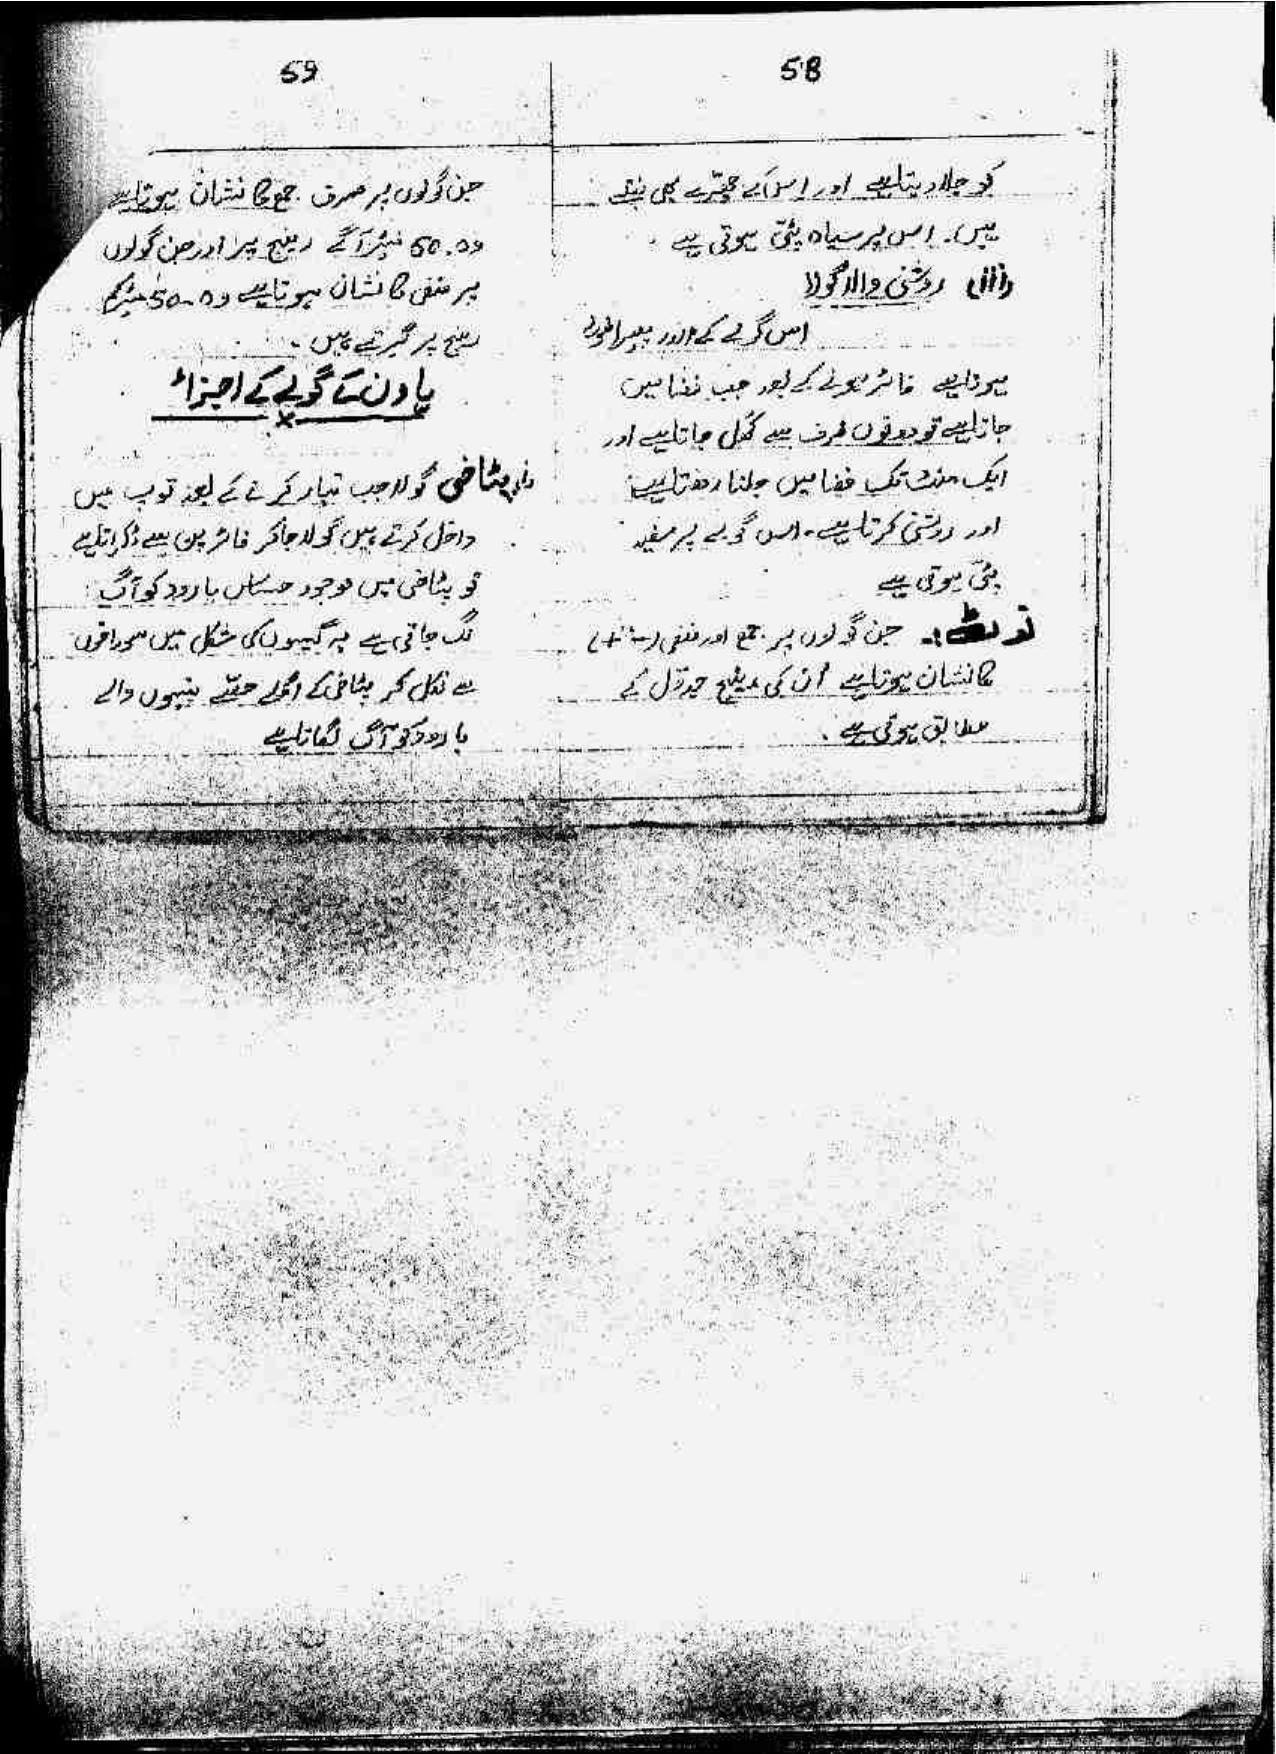 58
کو جلا دیتا ہے اور اس کے چھرے بھی بنتے
ہیں۔ اس پر سیاہ پٹی ہوتی ہے۔
روشنی والا گولا
اس گولے کے اندر پیراشوٹ
ہوتا ہے فائر ہونے کے بعد جب فضا میں
جاتا ہے تو دونوں طرف سے کھل جاتا ہے اور
ایک منٹ تک فضا میں جلتا رہتا ہے
اور روشنی کرتا ہے۔ اس گولے پر سفید
پٹی ہوتی ہے
نوٹ:۔ جن گولوں پر جمع اور منفی
کا نشان ہوتا ہے اُن کی رینج جدول کے
مطابق ہوتی ہے۔
59
جن گولوں پر صرف جمع کا نشان ہوتا ہے
وہ 50.میٹر آگے رینج پر اور جن گولوں
پر منفی کا نشان ہوتا ہے وہ 50 میٹر کم
رینج پر گرتے ہیں۔
ہاون کے گولے کے اجزاء
پٹاخی گولا جب تیار کرنے کے بعد توپ میں
داخل کرتے ہیں گولا جا کر فائر پن سے ٹکراتا ہے
تو پٹاخی میں موجود حساس بارود کو آگ
لگ جاتی ہے یہ گیسوں کی شکل میں سوراخوں
سے نکل کر پٹاخی کے اگلے حصے والے
بارود کو آگ لگاتا ہے